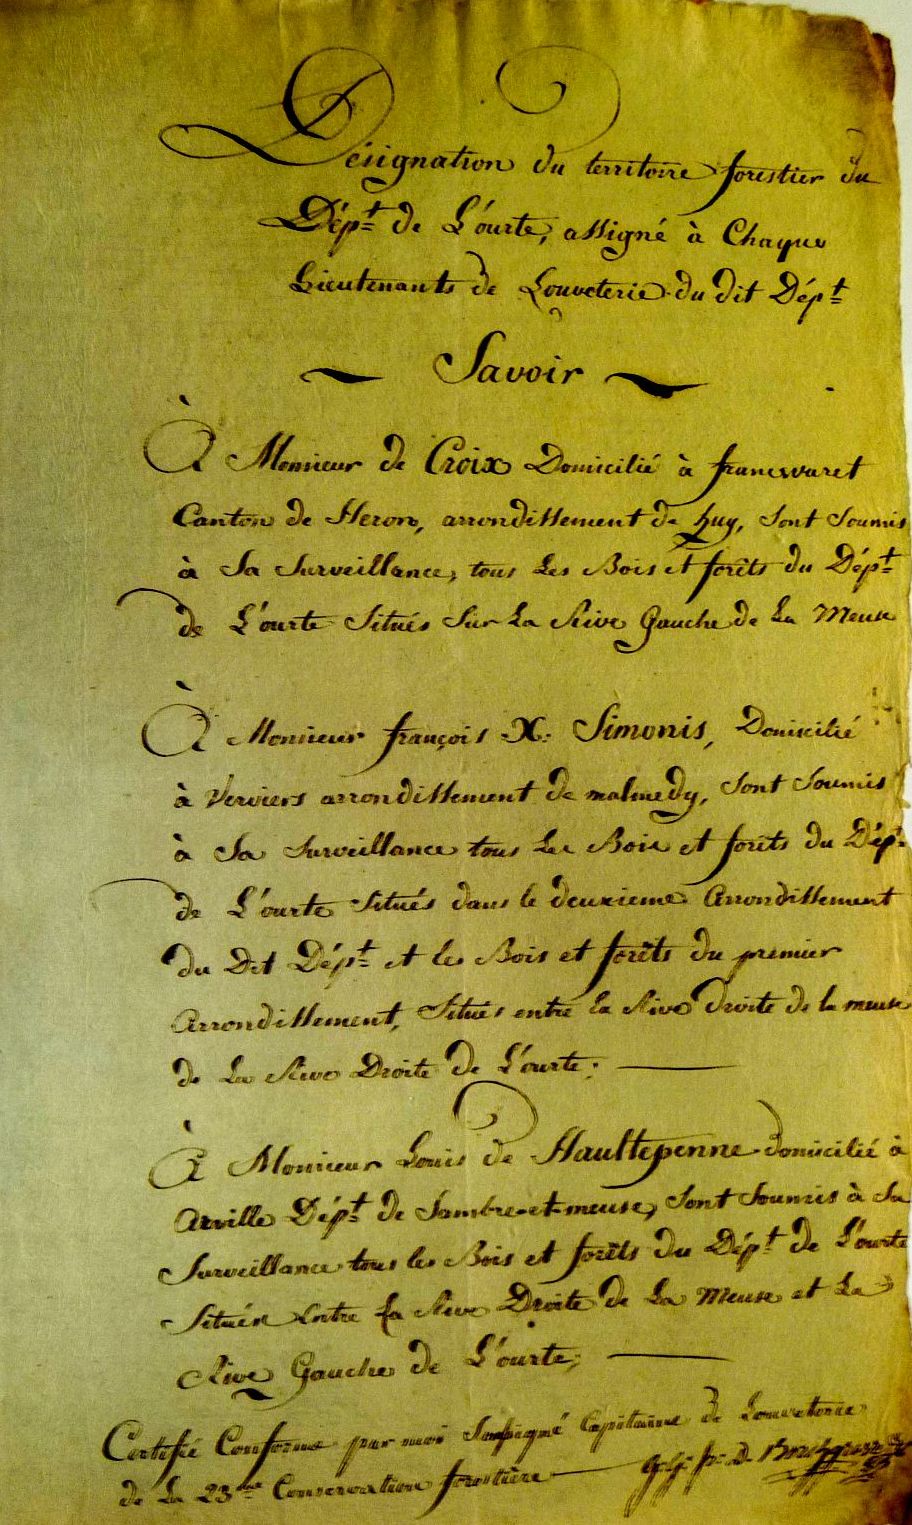 Désignation du territoire forestier du
Dépt de L'ourte, assigné à Chaque
Lieutenants de Louveterie du dit Dépt
Savoir
À Monsieur de Croix Domicilié à francwaret
Canton de Heron, arrondissement de huy, sont soumis
à Sa surveillance, tous Les Bois et forêts du Dépt
de L'ourte Situés Sur La Rive Gauche de La Meuse
À Monsieur françois X: Simonis, Domicilié
à Verviers arrondissement de malmedy, sont soumis
à Sa surveillance tous Les Bois et forêts du Dépt
de L'ourte situés dans le deuxieme Arrondissement
du Dit Dépt et les Bois et forêts du premier
Arrondissement, Situés entre la Rive Droite de la meuse
de La Rive Droite de L'ourte;
À Monsieur Louis de Haultepenne domicilié à
Arville Dépt de Sambre-et-meuse, sont Soumis à Sa
Surveillance tous les Bois et forêts du Dépt de L'ourte
Situés Entre La Rive Droite de La Meuse et La
Rive Gauche de L'ourte;
Certifié Conforme par moi Soussigné Capitaine de Louveterie
de La 23me Conservation forestière